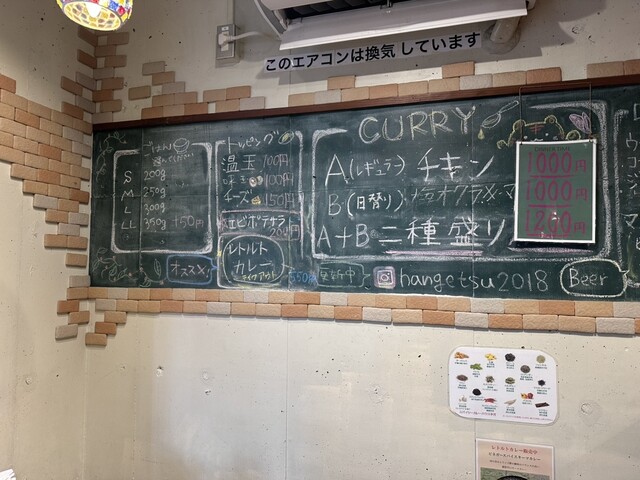 このエアコンは換気しています
ごはん
S 200g
M 250g
L 300g
LL 350g +50円
トッピング
温玉 100円
味玉 100円
チーズ 150円
エビポテサラ
200円
オススメ
レトルト
カレー
テイクアウト
550円
CURRY
A.(レギュラー) チキン
B.(日替り)
A+B 二種盛り
1000円
1000円
1200円
更新中 hangetsu2018
Beer
レトルトカレー販売中